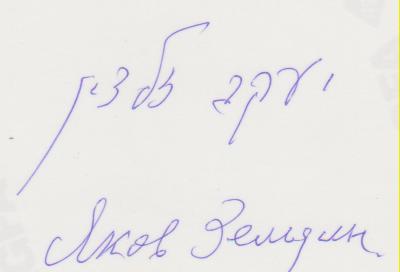 יעקב זלדין
Яков Зельдин.